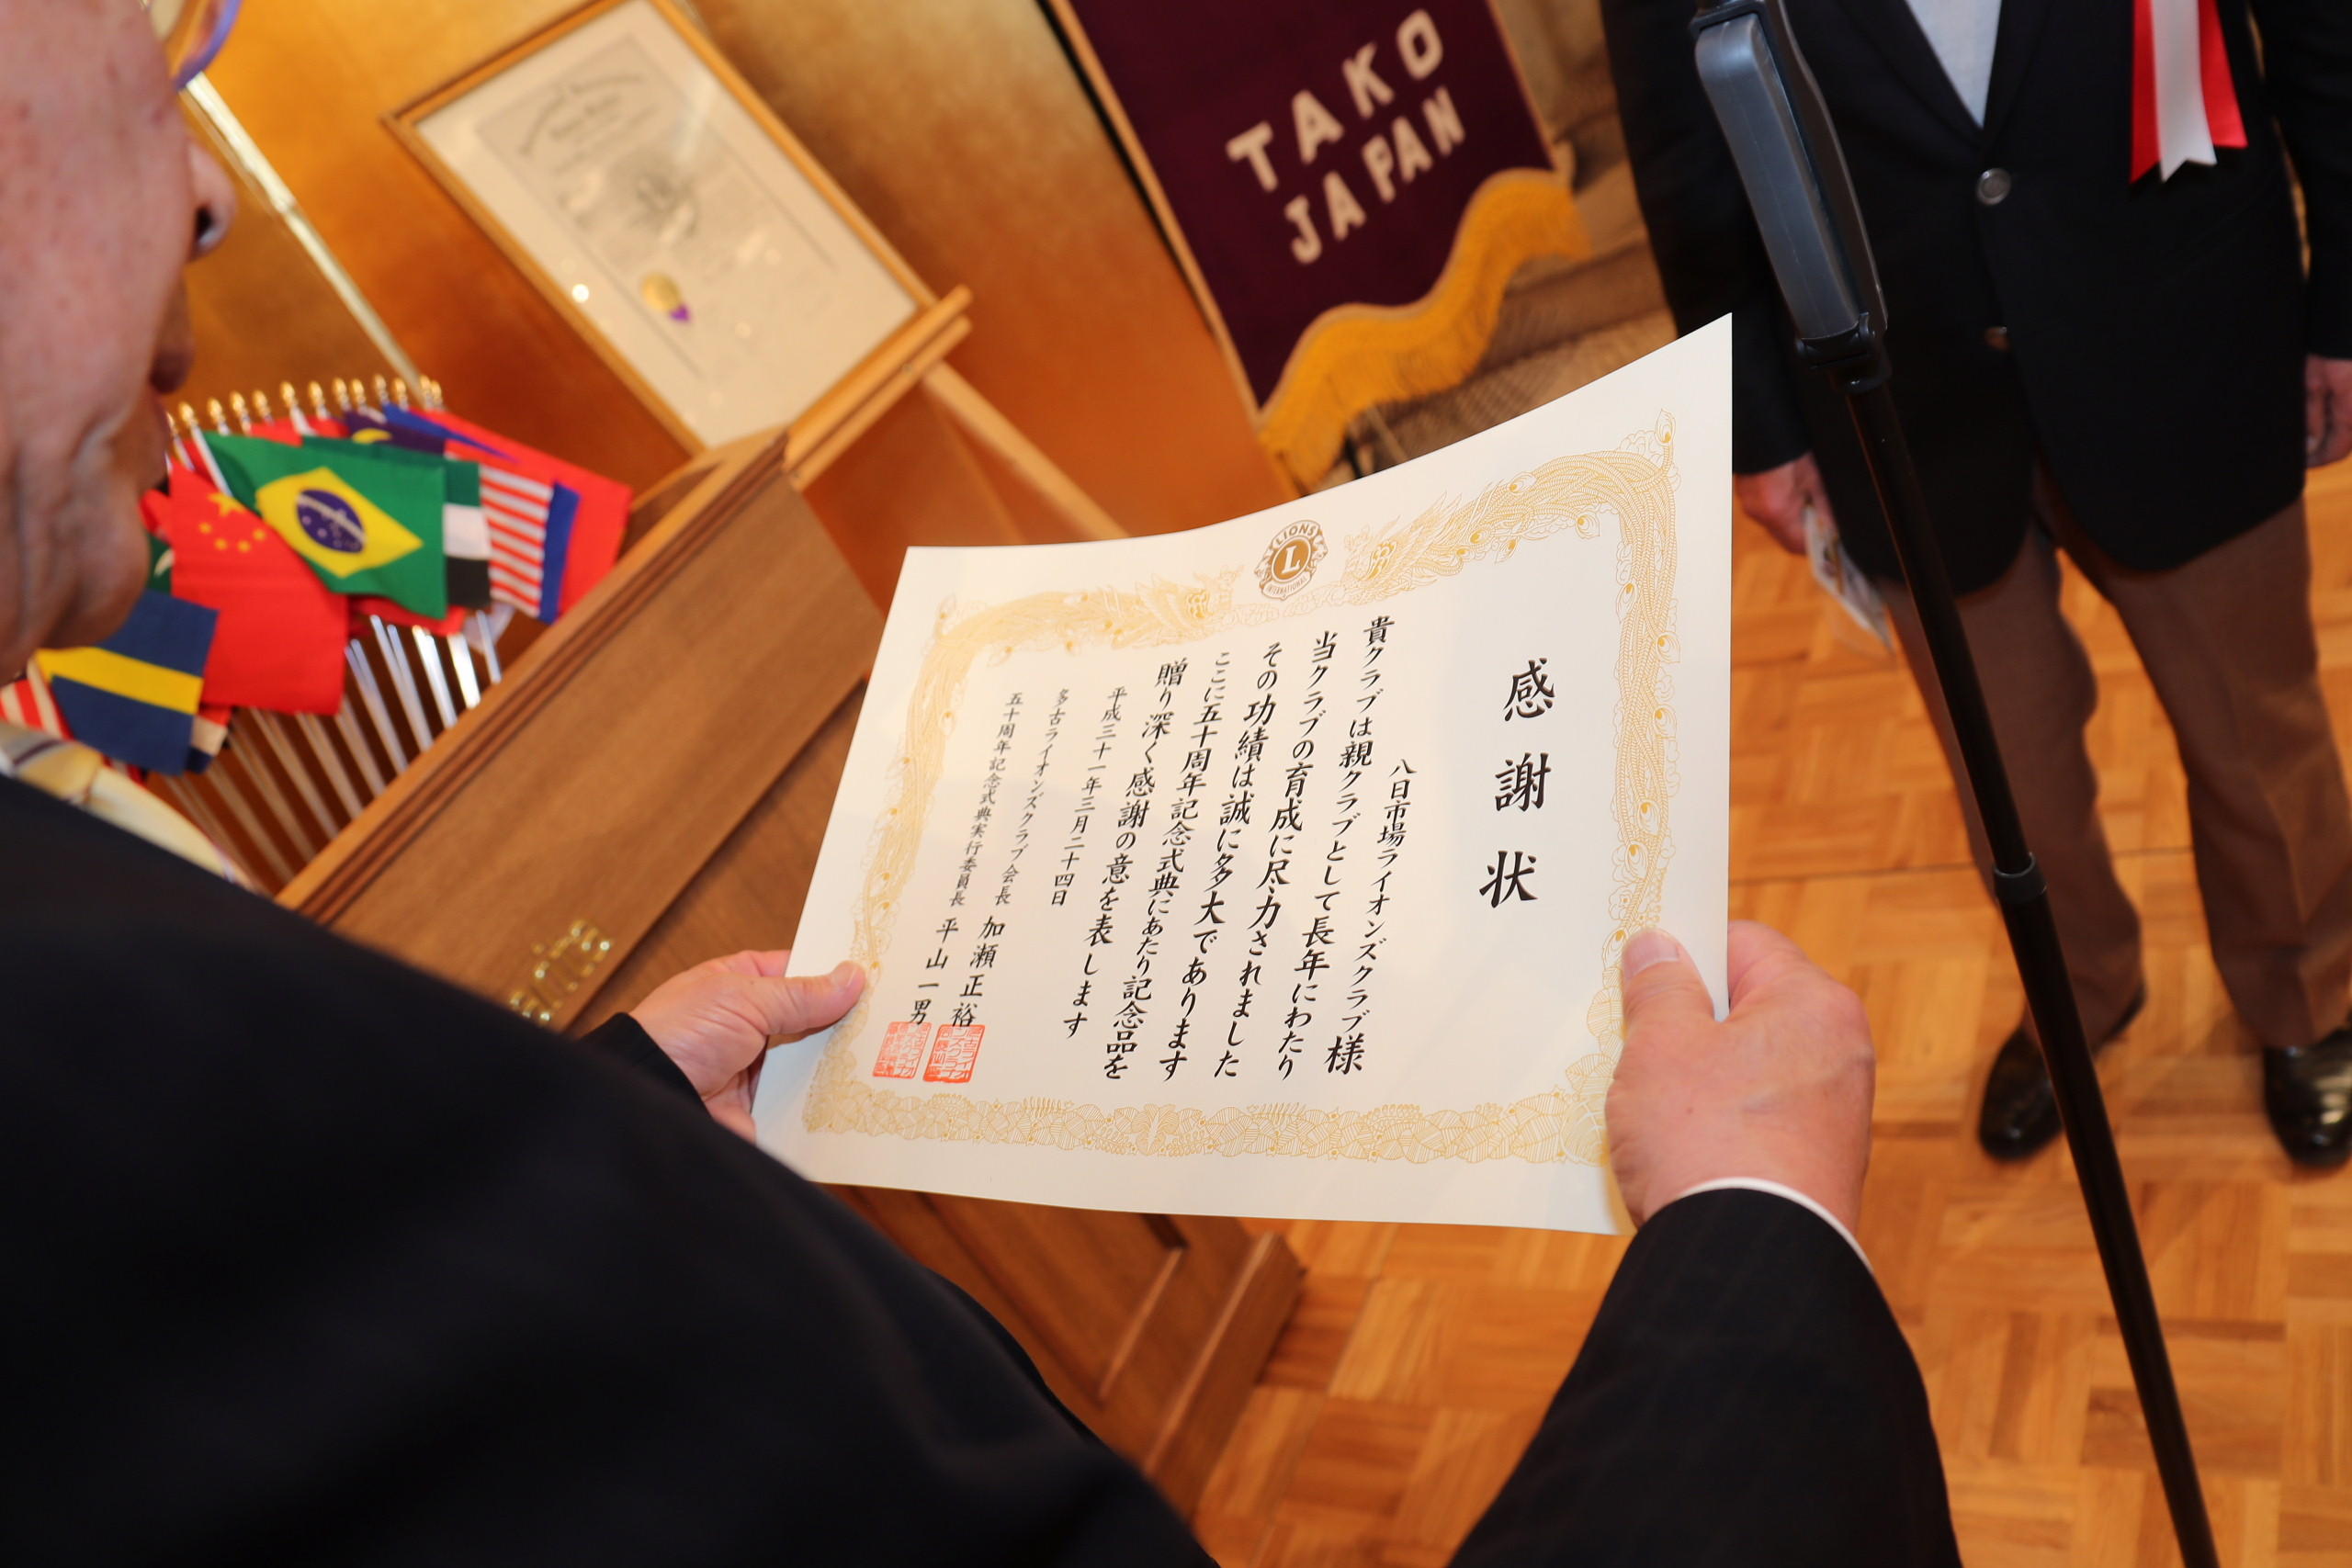 TAKO
JAPAN
LIONS
L
INTERNATIONAL
感謝状
八日市場ライオンズクラブ様
貴クラブは親クラブとして長年にわたり
当クラブの育成に尽力されました
その功績は誠に多大であります
ここに五十周年記念式典にあたり記念品を
贈り深く感謝の意を表します
平成三十一年三月二十四日
多古ライオンズクラブ会長 加瀬正裕
五十周年記念式典実行委員長 平山一男